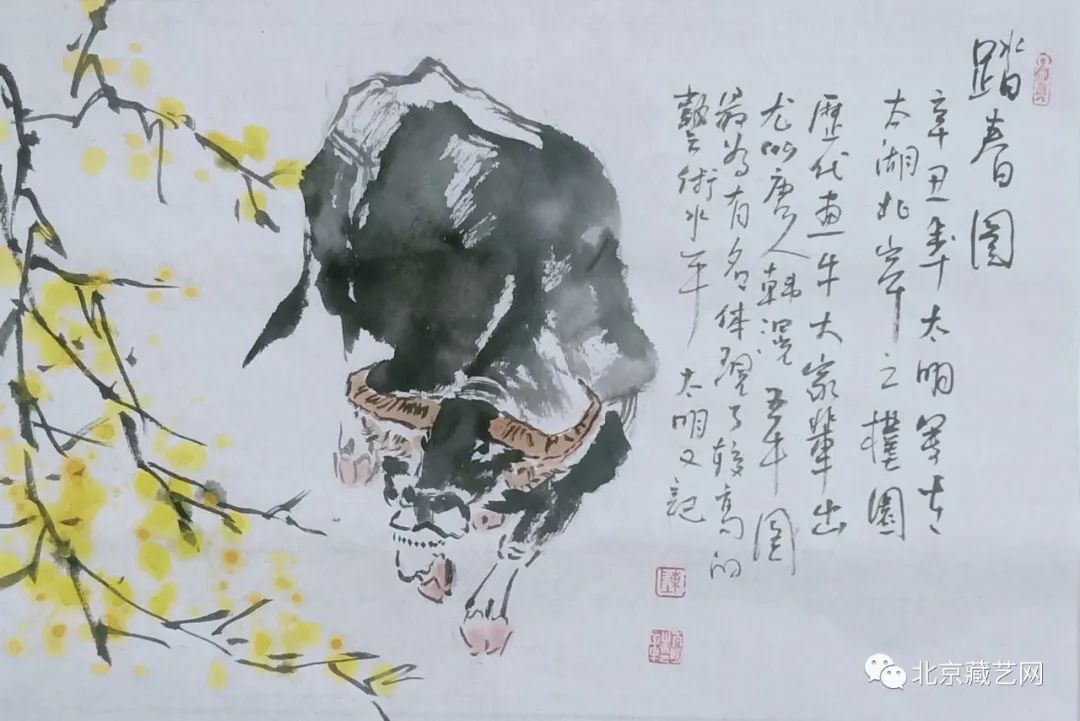 踏春图
辛丑年太明写于
太湖北岸之樸園
歷代画牛大家輩出
尤以唐人韩滉五牛图
最为有名体現了較高的
藝术水平 太明又記
北京藏艺网